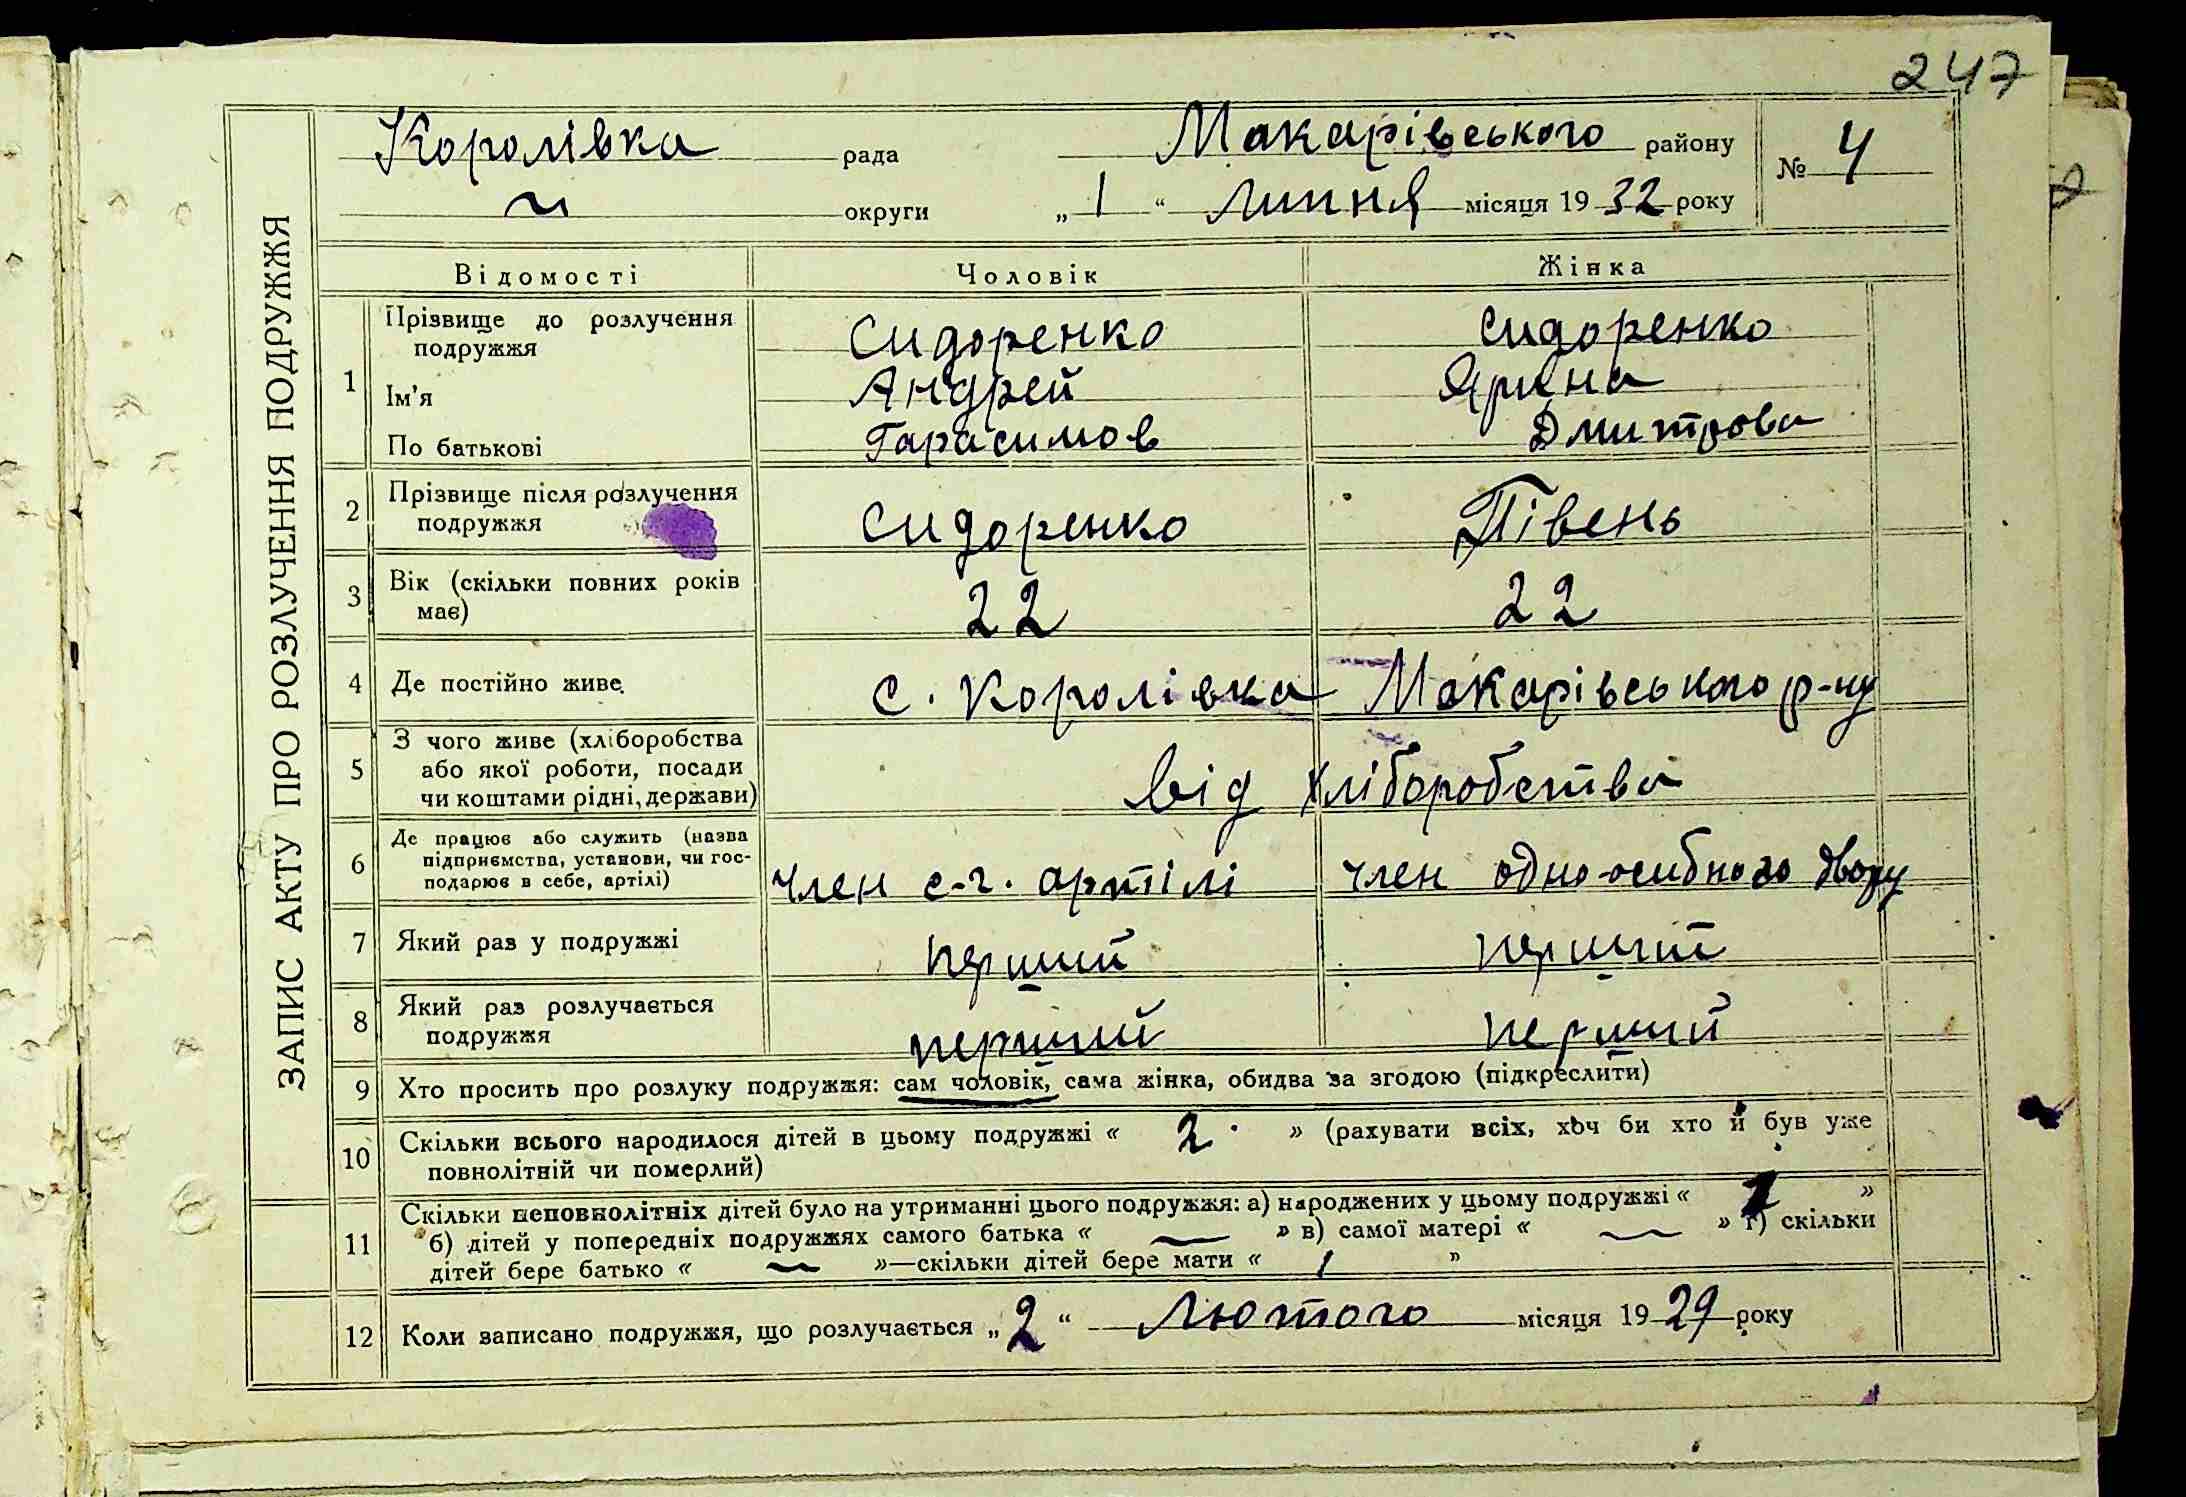 247
Королівка рада Макарівського району № 4
округи „ 1 “ Липня місяця 19 32 року
ЗАПИС АКТУ ПРО РОЗЛУЧЕННЯ ПОДРУЖЖЯ
Відомості Чоловік Жінка
1 Прізвище до розлучення Сидоренко Сидоренко
подружжя
Ім'я Андрей Ярина
По батькові Гарасимов Дмитрова
2 Прізвище після розлучення Сидоренко Півень
подружжя
3 Вік (скільки повних років 22 22
має)
4 Де постійно живе с. Королівка Макарівського р-ну
5 З чого живе (хліборобства
або якої роботи, посади від хліборобства
чи коштами рідні, держави)
6 Де працює або служить (назва
підприємства, установи, чи гос- член с-г. артілі член одно-осибного двору
подарює в себе, артілі)
7 Який раз у подружжі перший перший
8 Який раз розлучається перший перший
подружжя
9 Хто просить про розлуку подружжя: сам чоловік, сама жінка, обидва за згодою (підкреслити)
10 Скільки всього народилося дітей в цьому подружжі « 2 » (рахувати всіх, хоч би хто й був уже
повнолітній чи померлий)
11 Скільки неповнолітніх дітей було на утриманні цього подружжя: а) народжених у цьому подружжі « »
б) дітей у попередніх подружжях самого батька « — » в) самої матері « — » г) скільки
дітей бере батько « — »—скільки дітей бере мати « 1 »
12 Коли записано подружжя, що розлучається „ 2 “ Лютого місяця 19 29 року